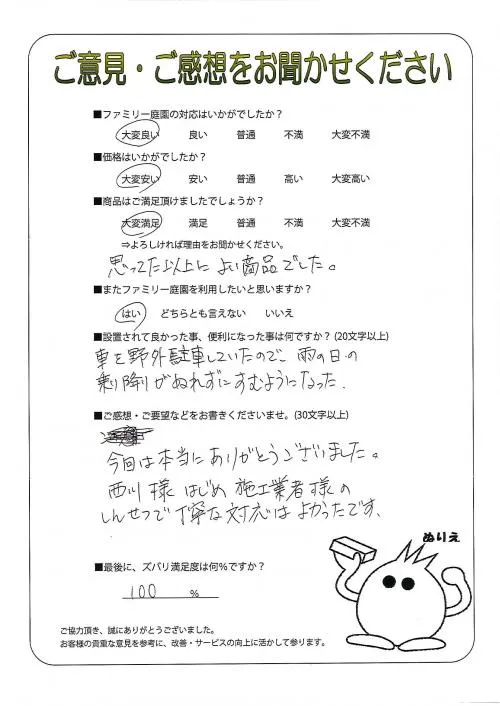 ご意見・ご感想をお聞かせください
■ファミリー庭園の対応はいかがでしたか？
大変良い 良い 普通 不満 大変不満
■価格はいかがでしたか？
大変安い 安い 普通 高い 大変高い
■商品はご満足頂けましたでしょうか？
大変満足 満足 普通 不満 大変不満
⇒よろしければ理由をお聞かせください。
思ってた以上に よい商品でした。
■またファミリー庭園を利用したいと思いますか？
はい どちらとも言えない いいえ
■設置されて良かった事、便利になった事は何ですか？(20文字以上)
車を野外駐車していたので 雨の日の
乗り降りがぬれずにすむようになった.
■ご感想・ご要望などをお書きくださいませ。(30文字以上)
今回は本当にありがとうございました。
西川様 はじめ 施工業者様の
しんせつで丁寧な対応は よかったです、
■最後に、ズバリ満足度は何％ですか？
100 %
ぬりえ
ご協力頂き、誠にありがとうございました。
お客様の貴重な意見を参考に、改善・サービスの向上に活かして参ります。